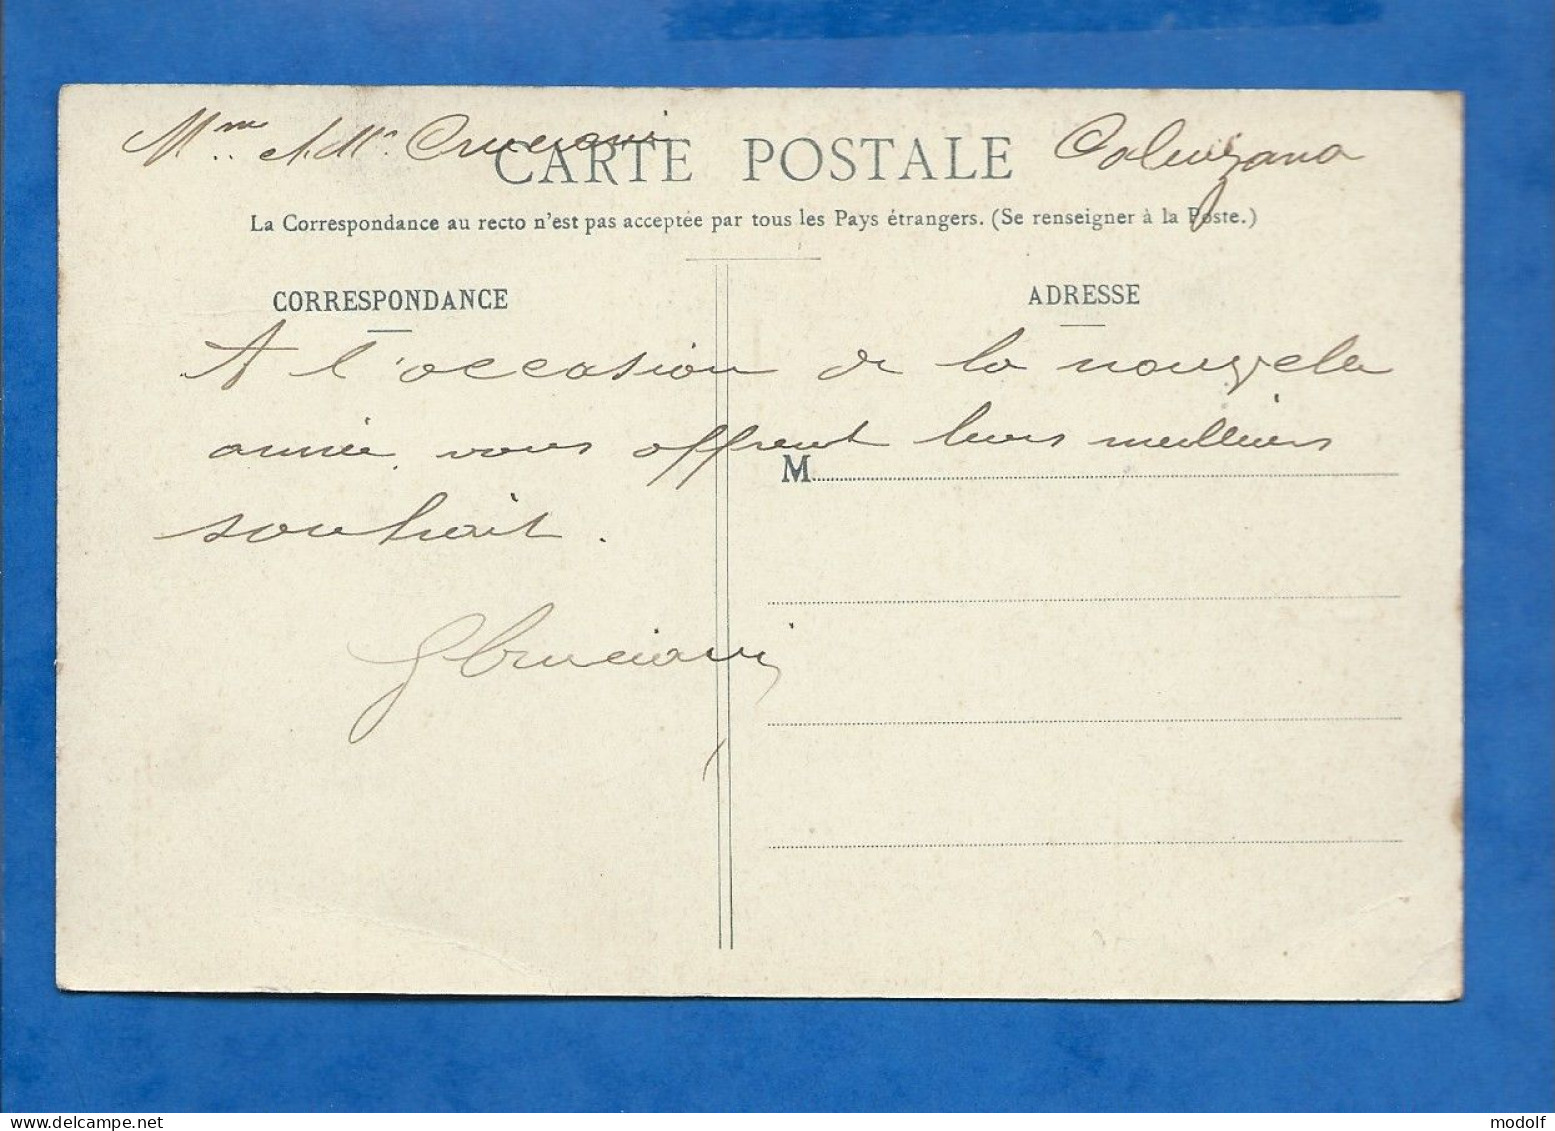 Mme et Mr Calenzana
CARTE POSTALE
La Correspondance au recto n'est pas acceptée par tous les Pays étrangers. (Se renseigner à la Poste.)
CORRESPONDANCE ADRESSE
A l'occasion de la nouvele
année, vous offrent leurs meilleurs
M
souhait.
delcampe.net
modolf